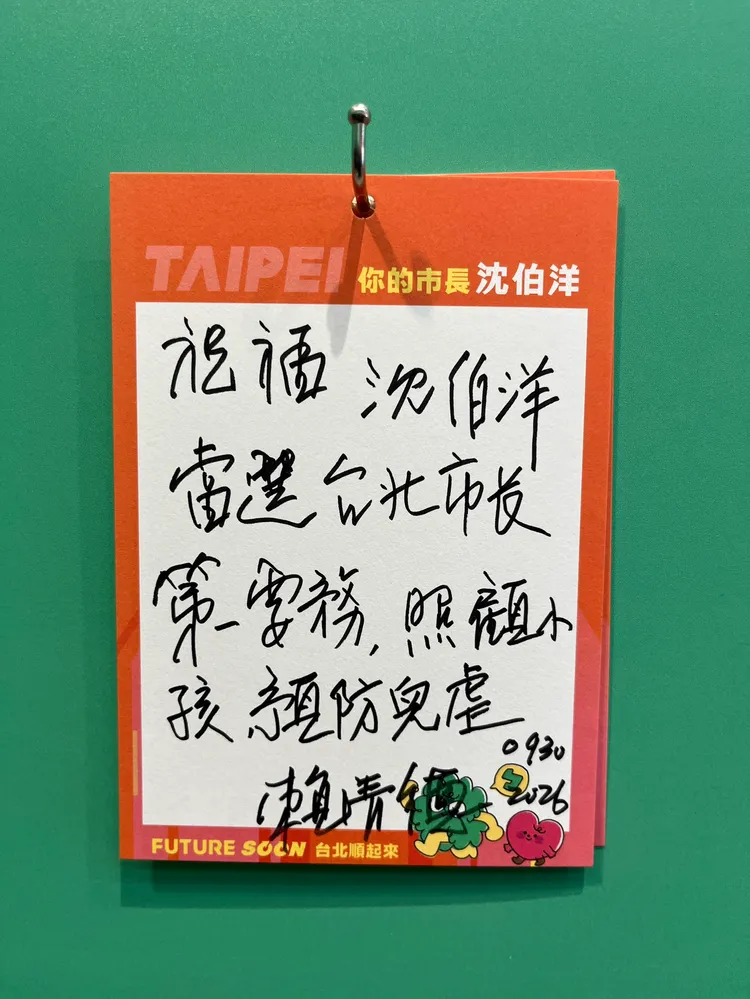 TAIPEI 你的市長 沈伯洋
祝福 沈伯洋
當選台北市长
第一要務,照顧小
孩預防兒虐
0930
賴清德 2026
FUTURE SOON 台北順起來